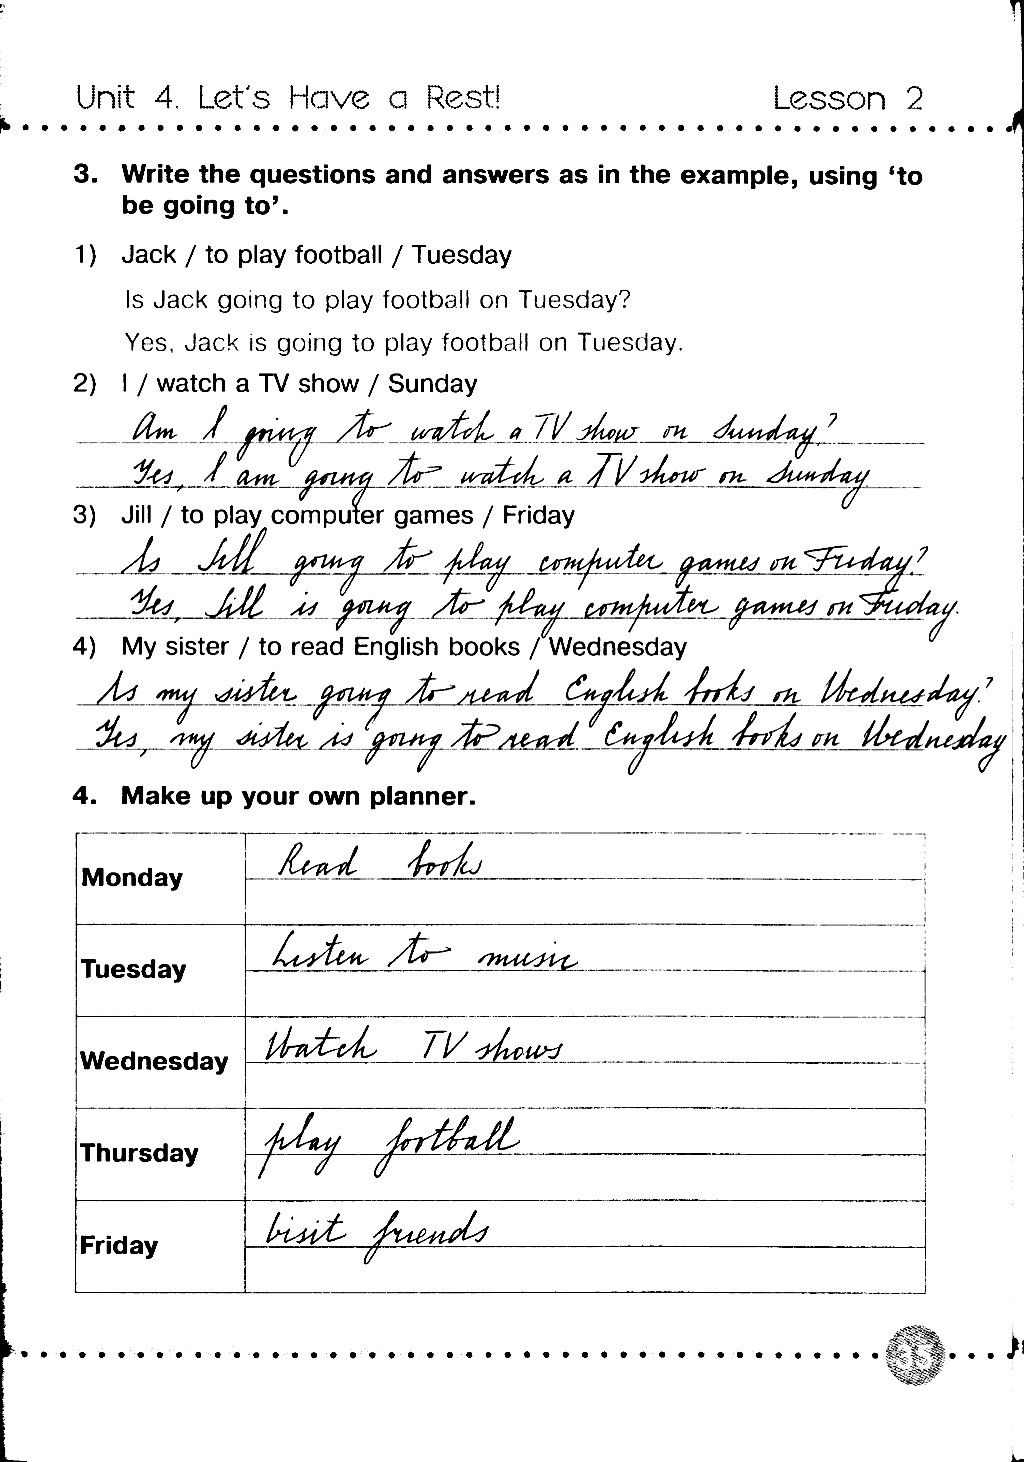 Unit 4. Let's Have a Rest! Lesson 2
3. Write the questions and answers as in the example, using ‘to
be going to’.
1) Jack / to play football / Tuesday
Is Jack going to play football on Tuesday?
Yes, Jack is going to play football on Tuesday.
2) I / watch a TV show / Sunday
Am I going to watch a TV show on Sunday?
Yes, I am going to watch a TV show on Sunday
3) Jill / to play computer games / Friday
Is Jill going to play computer games on Friday?
Yes, Jill is going to play computer games on Friday.
4) My sister / to read English books / Wednesday
Is my sister going to read English books on Wednesday?
Yes, my sister is going to read English books on Wednesday
4. Make up your own planner.
Monday Read books
Tuesday Listen to music
Wednesday Watch TV shows
Thursday play football
Friday visit friends
35